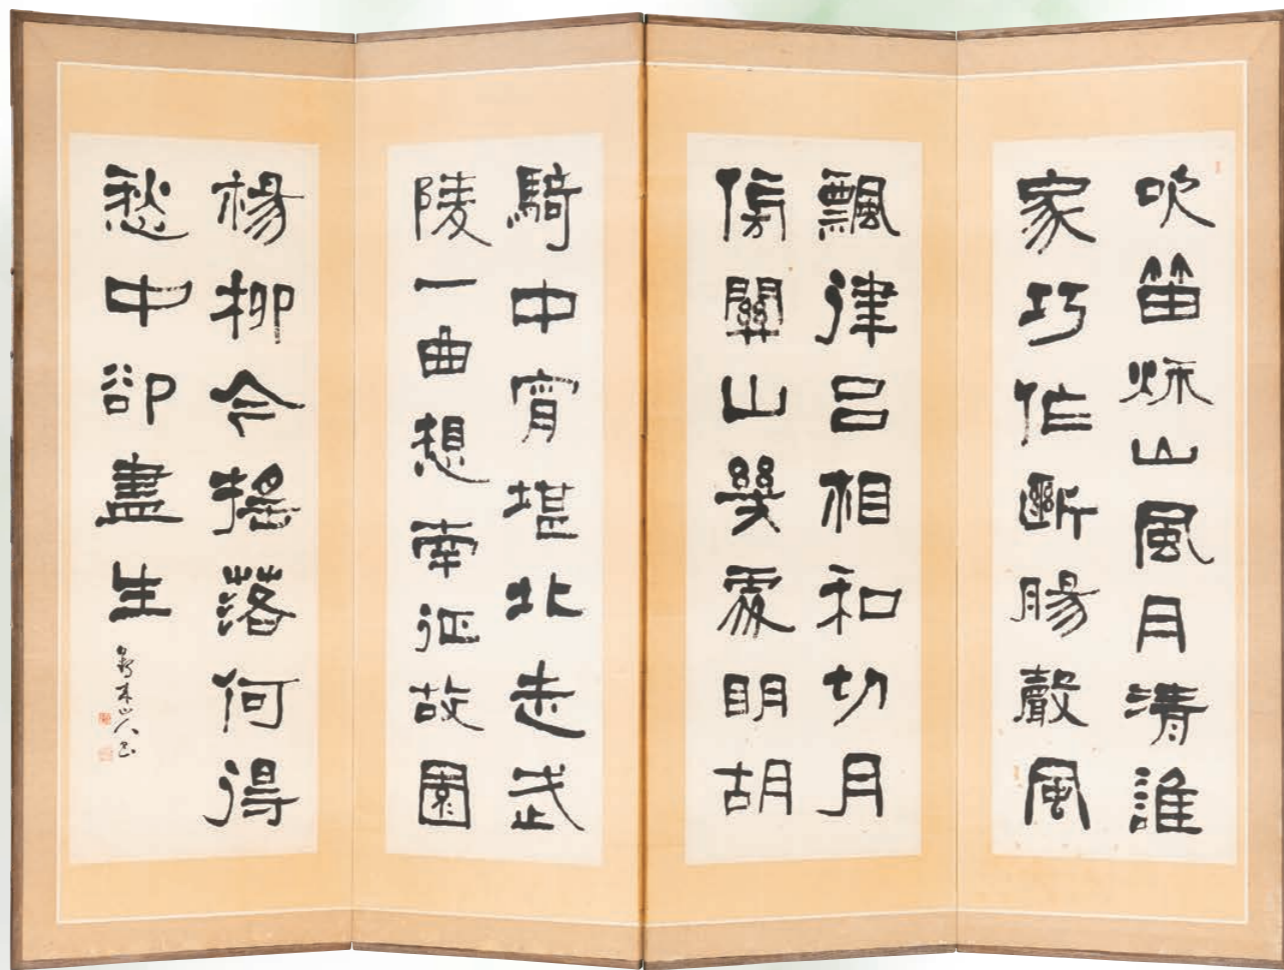 吹笛秋山風月清誰
家巧作斷腸聲風
飄律呂相和切月
傍關山幾處明胡
騎中宵堪北走武
陵一曲想南征故園
楊柳今搖落何得
愁中卻盡生
山人書